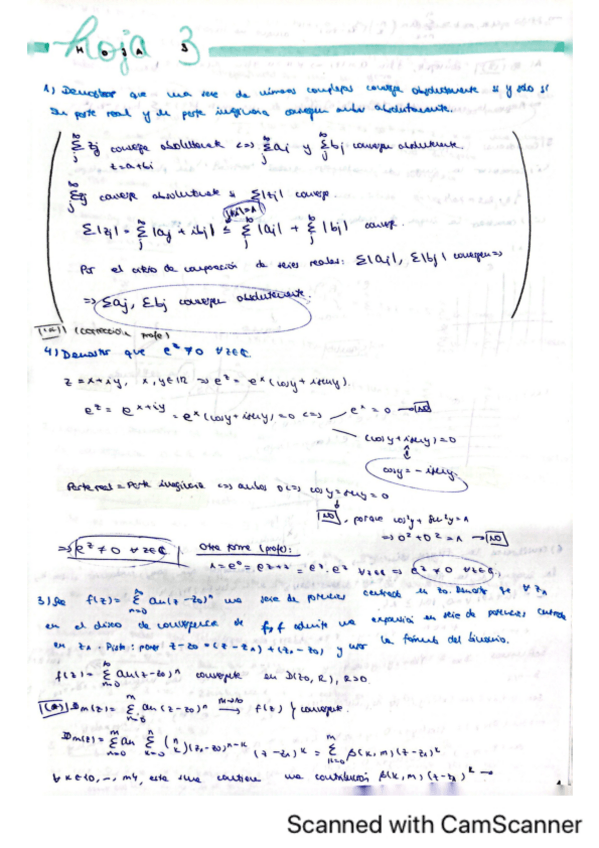 hoja 3
HOJA 3
1) Demostrar que una serie de números complejos converge absolutamente si y sólo si
su parte real y de parte imaginaria convergen ambas absolutamente.
∞Σj zj converge absolutamente <=> ∞Σj aj y ∞Σj bj convergen absolutamente.
z=a+bi
∞Σj zj converge absolutamente si Σ|zj| converge.
|i|=1
Σ|zj| = ∞Σj |aj + ibj| ≤ ∞Σj |aj| + ∞Σj |bj| converge.
Por el criterio de comparación de series reales: Σ|aj|, Σ|bj| convergen =>
=> Σaj, Σbj convergen absolutamente.
(corrección profe)
4) Demostrar que e^z ≠ 0 ∀z∈C
z = x+iy, x,y∈IR => e^z = e^x (cosy + iseny).
e^z = e^x+iy = e^x (cosy + iseny) = 0 <=> e^x = 0 → NO
(cosy + iseny) = 0
cosy = -iseny.
Parte real = Parte imaginaria <=> ambas 0 <=> cosy = seny = 0
NO, porque cos²y + sen²y = 1
=> 0² + 0² = 1 → NO
=> e^z ≠ 0 ∀z∈C. Otra forma (profe):
1 = e^0 = e^z-z = e^z · e^-z ∀z∈C => e^z ≠ 0 ∀z∈C.
3) Sea f(z) = ∞Σn=0 an(z-z0)^n una serie de potencias centrada en z0. Demostrar que ∀ z1
en el disco de convergencia de f, f admite una expansión en serie de potencias centrada
en z1. Pista: poner z-z0 = (z-z1) + (z1-z0) y usar la fórmula del binomio.
f(z) = ∞Σn=0 an(z-z0)^n convergente en D(z0, R), R>0.
Sm(z) = mΣn=0 an(z-z0)^n m→∞ f(z) converge.
Sm(z) = mΣn=0 an nΣk=0 (n k)(z1-z0)^n-k (z-z1)^k = mΣk=0 β(k,m)(z-z1)^k
∀k∈{0,…,m}, esta suma contiene una contribución β(k,m)(z-z1)^k →
Scanned with CamScanner